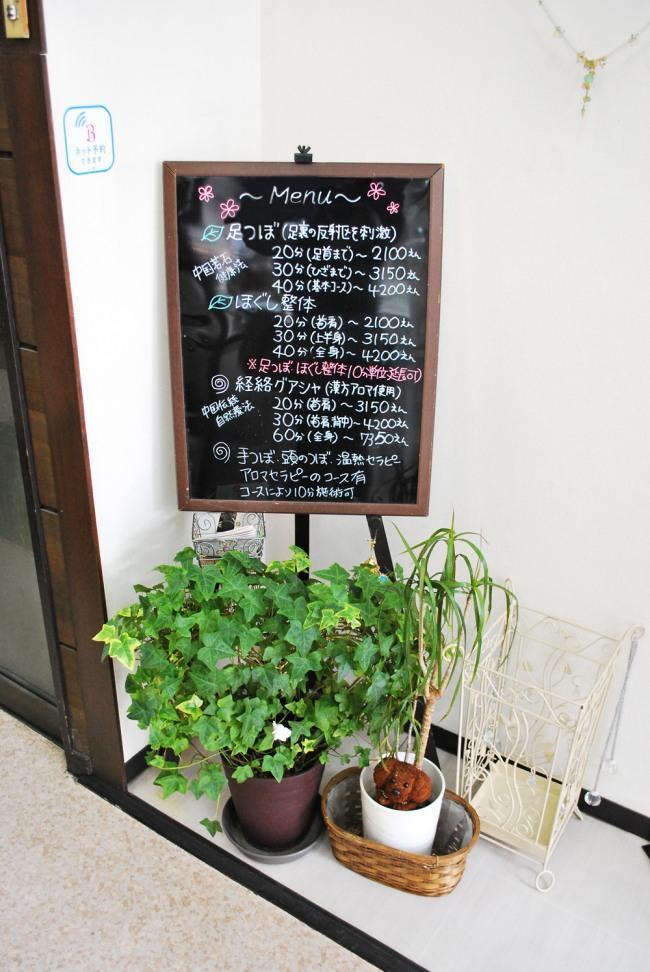 B
ネット予約
できます
～Menu～
足つぼ(足裏の反射区を刺激)
中国若石
健康法
20分(足首まで)～2100えん
30分(ひざまで)～3150えん
40分(基本コース)～4200えん
ほぐし整体
20分(首肩)～2100えん
30分(上半身)～3150えん
40分(全身)～4200えん
※足つぼ ほぐし整体10分単位延長可
経絡グアシャ(漢方アロマ使用)
中国伝統
自然療法
20分(首肩)～3150えん
30分(首肩背中)～4200えん
60分(全身)～7350えん
手つぼ.頭のつぼ.温熱セラピー
アロマセラピーのコース有
コースにより10分施術可